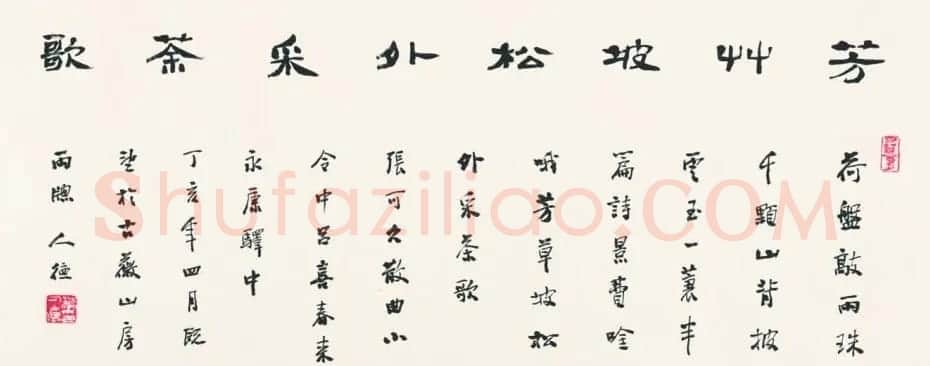 芳艸坡松外采茶歌
荷盤敲雨珠
千顆山背披
雲玉一蓑半
篇詩景費吟
哦芳草坡松
外采茶歌
張可久散曲小
令中呂喜春来
永康驛中
丁亥年四月既
望於古薇山房
雨牕人德
Shufaziliao.COM